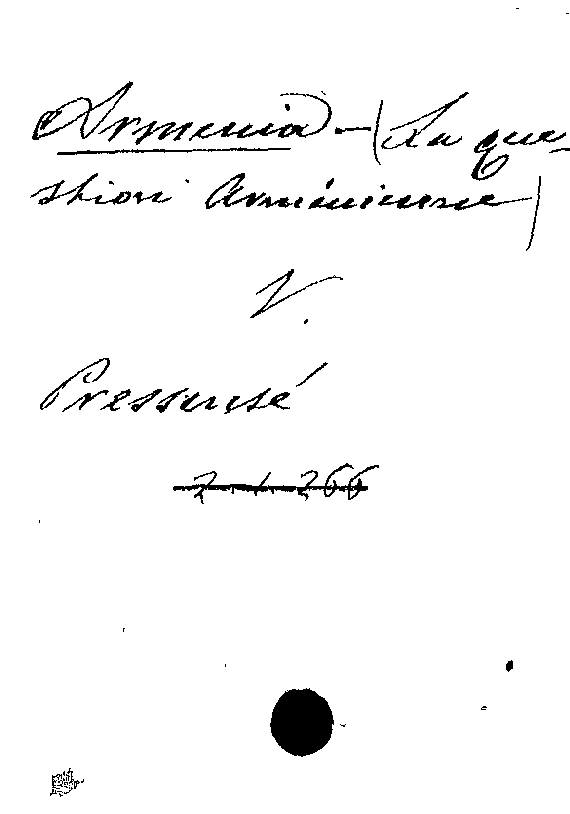 Armenia - (La que-
stion Arménienne)
V.
Pressensé
2. 1. 266